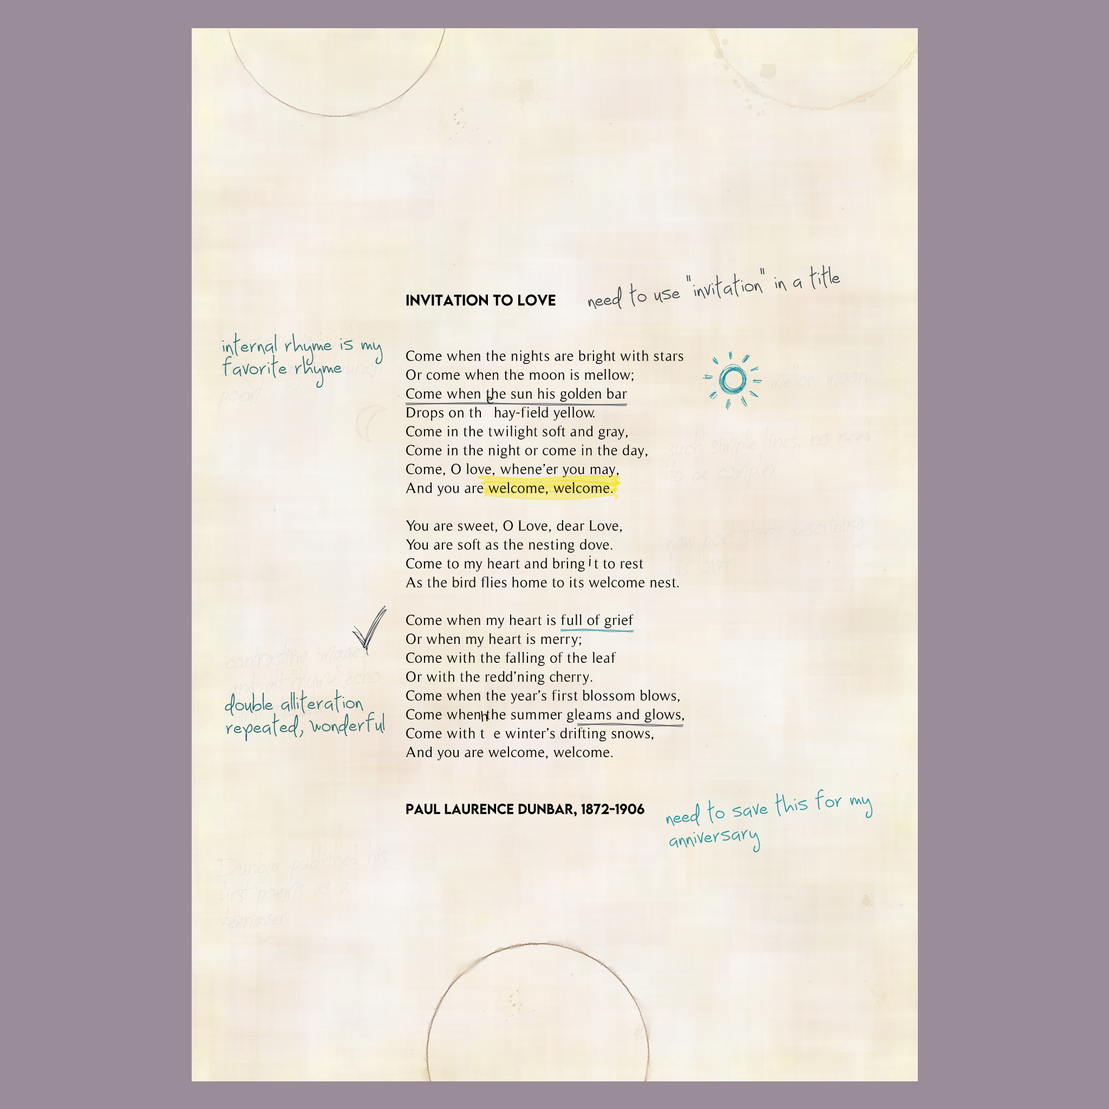 need to use "invitation" in a title
INVITATION TO LOVE
internal rhyme is my
favorite rhyme
Come when the nights are bright with stars
Or come when the moon is mellow;
Come when the sun his golden bar
Drops on the hay-field yellow.
Come in the twilight soft and gray,
Come in the night or come in the day,
Come, O love, whene'er you may,
And you are welcome, welcome.
You are sweet, O Love, dear Love,
You are soft as the nesting dove.
Come to my heart and bring it to rest
As the bird flies home to its welcome nest.
Come when my heart is full of grief
Or when my heart is merry;
Come with the falling of the leaf
Or with the redd'ning cherry.
Come when the year's first blossom blows,
Come when the summer gleams and glows,
Come with the winter's drifting snows,
And you are welcome, welcome.
double alliteration
repeated, wonderful
PAUL LAURENCE DUNBAR, 1872-1906
need to save this for my
anniversary